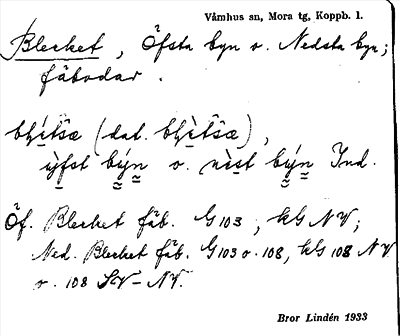 Våmhus sn, Mora tg, Koppb. l.
Blecket, Öfsta byn o. Nedsta byn;
fäbodar.
(dat.
byn o. byn Ind.
Öf. Blecket fäb. G103, kG NV;
Ned. Blecket fäb. G103 o. 108, kG 108 NV
o. 108 SV-NV.
Bror Lindén 1933